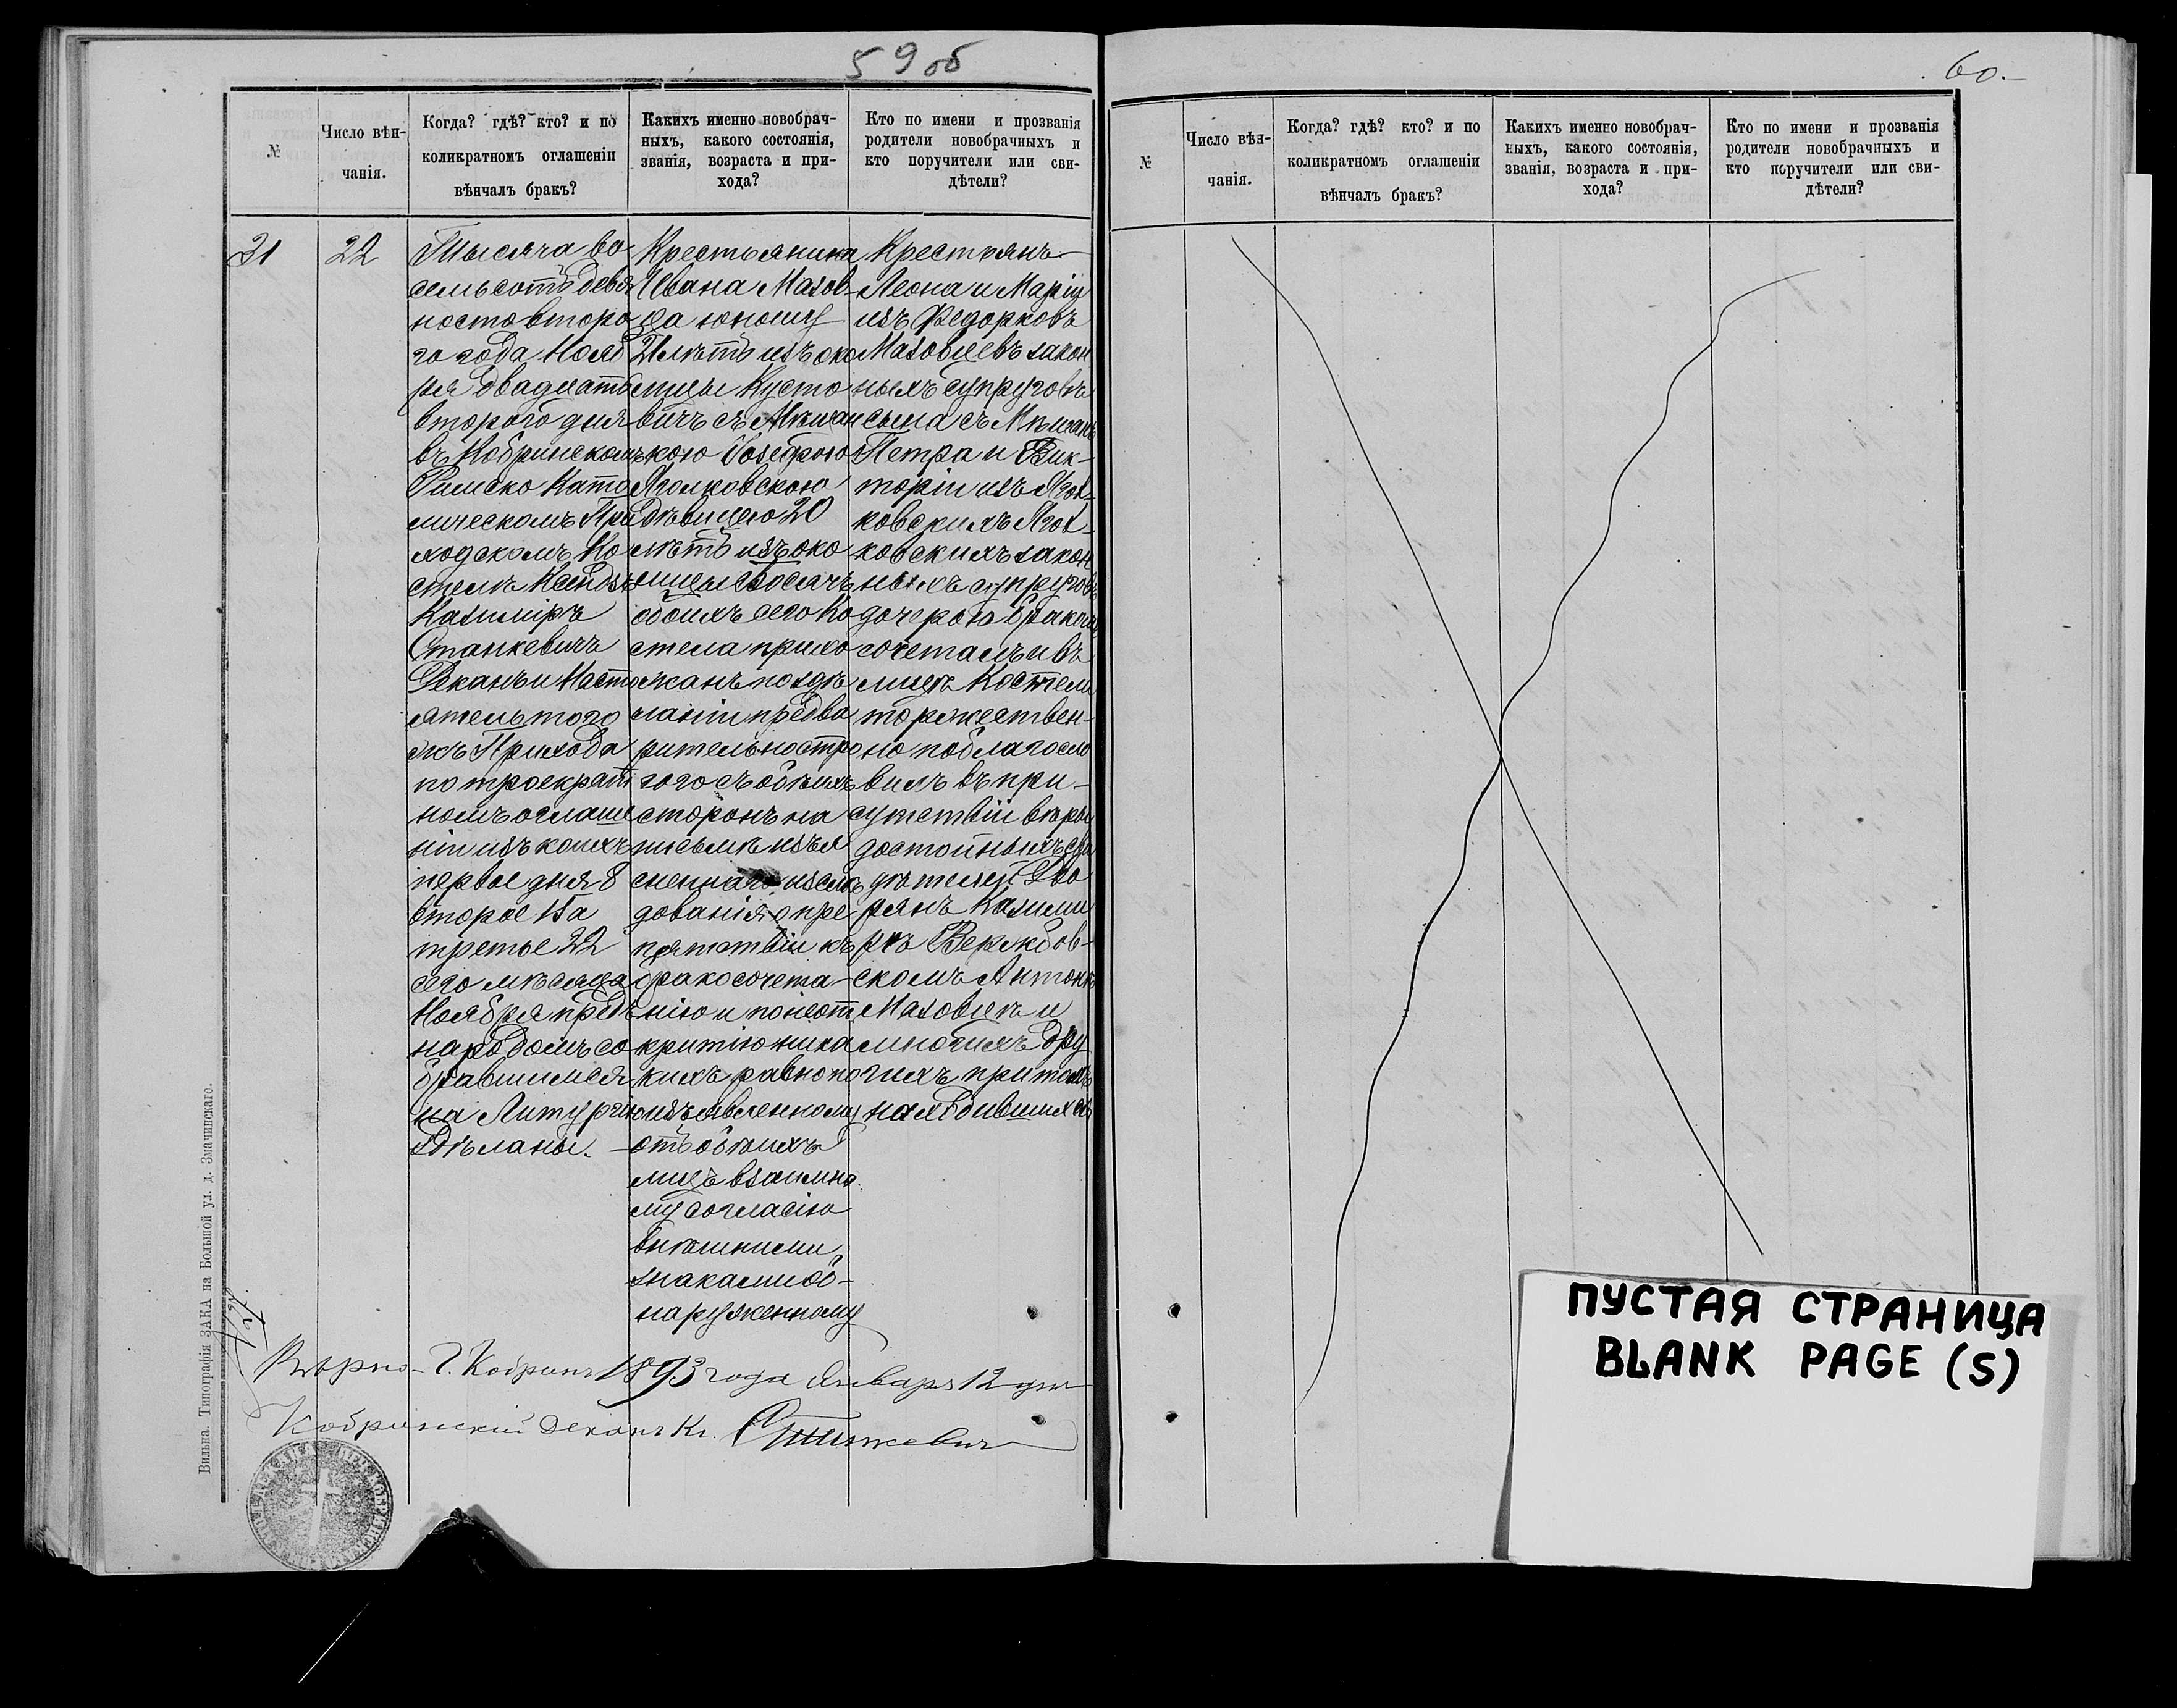 59 об
№
Число вѣн-
чанія.
Когда? гдѣ? кто? и по
коликратномъ оглашеніи
вѣнчалъ бракъ?
Какихъ именно новобрач-
ныхъ, какого состоянія,
званія, возраста и при-
хода?
Кто по имени и прозванія
родители новобрачныхъ и
кто поручители или сви-
дѣтели?
31
22
Тысяча во
семьсотъ девя
носто второ
го года Нояб
ря двадцать
второго дня
въ Кобринскомъ
Римско Като
лическомъ При
ходскомъ Ко
стелѣ Ксендзъ
Казиміръ
Станкевичъ
Деканъ и Насто
ятель того
жъ Прихода
по троекрат
номъ оглаше
ніи изъ коихъ
первое дня 8
второе 15 а
третье 22
сего мѣсяца
Ноября предъ
народомъ со
бравшимся
на Литургію
сдѣланы.
Крестьянина
Ивана Мазов
ца юношу
21 лѣтъ изъ око
лицы Кусто
вичъ съ Мѣщан
кою Іозефою
Яголковскою
дѣвицею 20
лѣтъ изъ око
лицы Босячъ
обоихъ сего Ко
стела прихо
жанъ по здѣ
ланіи предва
рительно стро
гого съ обѣихъ
сторонъ на
письмѣ изъя
сненнаго изслѣ
дованія о пре
пятствіи къ
бракосочета-
нію и по неот
крытію ника
кихъ равно по
изъявленному
отъ обѣихъ
лицъ взаимно
му согласію
внѣшними
знаками об-
наруженному
Крестьянъ
Леона и Маріи
изъ Федорковъ
Мазовцевъ закон
ныхъ супруговъ
сына съ Мѣщанъ
Петра и Вик-
торіи изъ Ягол
ковскихъ Ягол
ковскихъ закон
ныхъ супруговъ
дочерою бракомъ
сочеталъ и въ
лицѣ Костела
торжествен-
но поблагосло
вилъ въ при-
сутствіи вѣры
достойныхъ сви
дѣтелей Дво
рянъ Казими
рѣ Вержбов-
скомъ Антонѣ
Мазовцѣ и
многихъ дру
гихъ при томъ
находившихся
Вѣрно - Г. Кобринъ 1893 года Января 12 дня
Кобринскій Деканъ Кс. Станкевичъ
Вильна. Типографія ЗАКА на Большой ул. д. Змачинскаго.
60.
№
Число вѣн-
чанія.
Когда? гдѣ? кто? и по
коликратномъ оглашеніи
вѣнчалъ бракъ?
Какихъ именно новобрач-
ныхъ, какого состоянія,
званія, возраста и при-
хода?
Кто по имени и прозванія
родители новобрачныхъ и
кто поручители или сви-
дѣтели?
ПУСТАЯ СТРАНИЦА
BLANK PAGE (S)